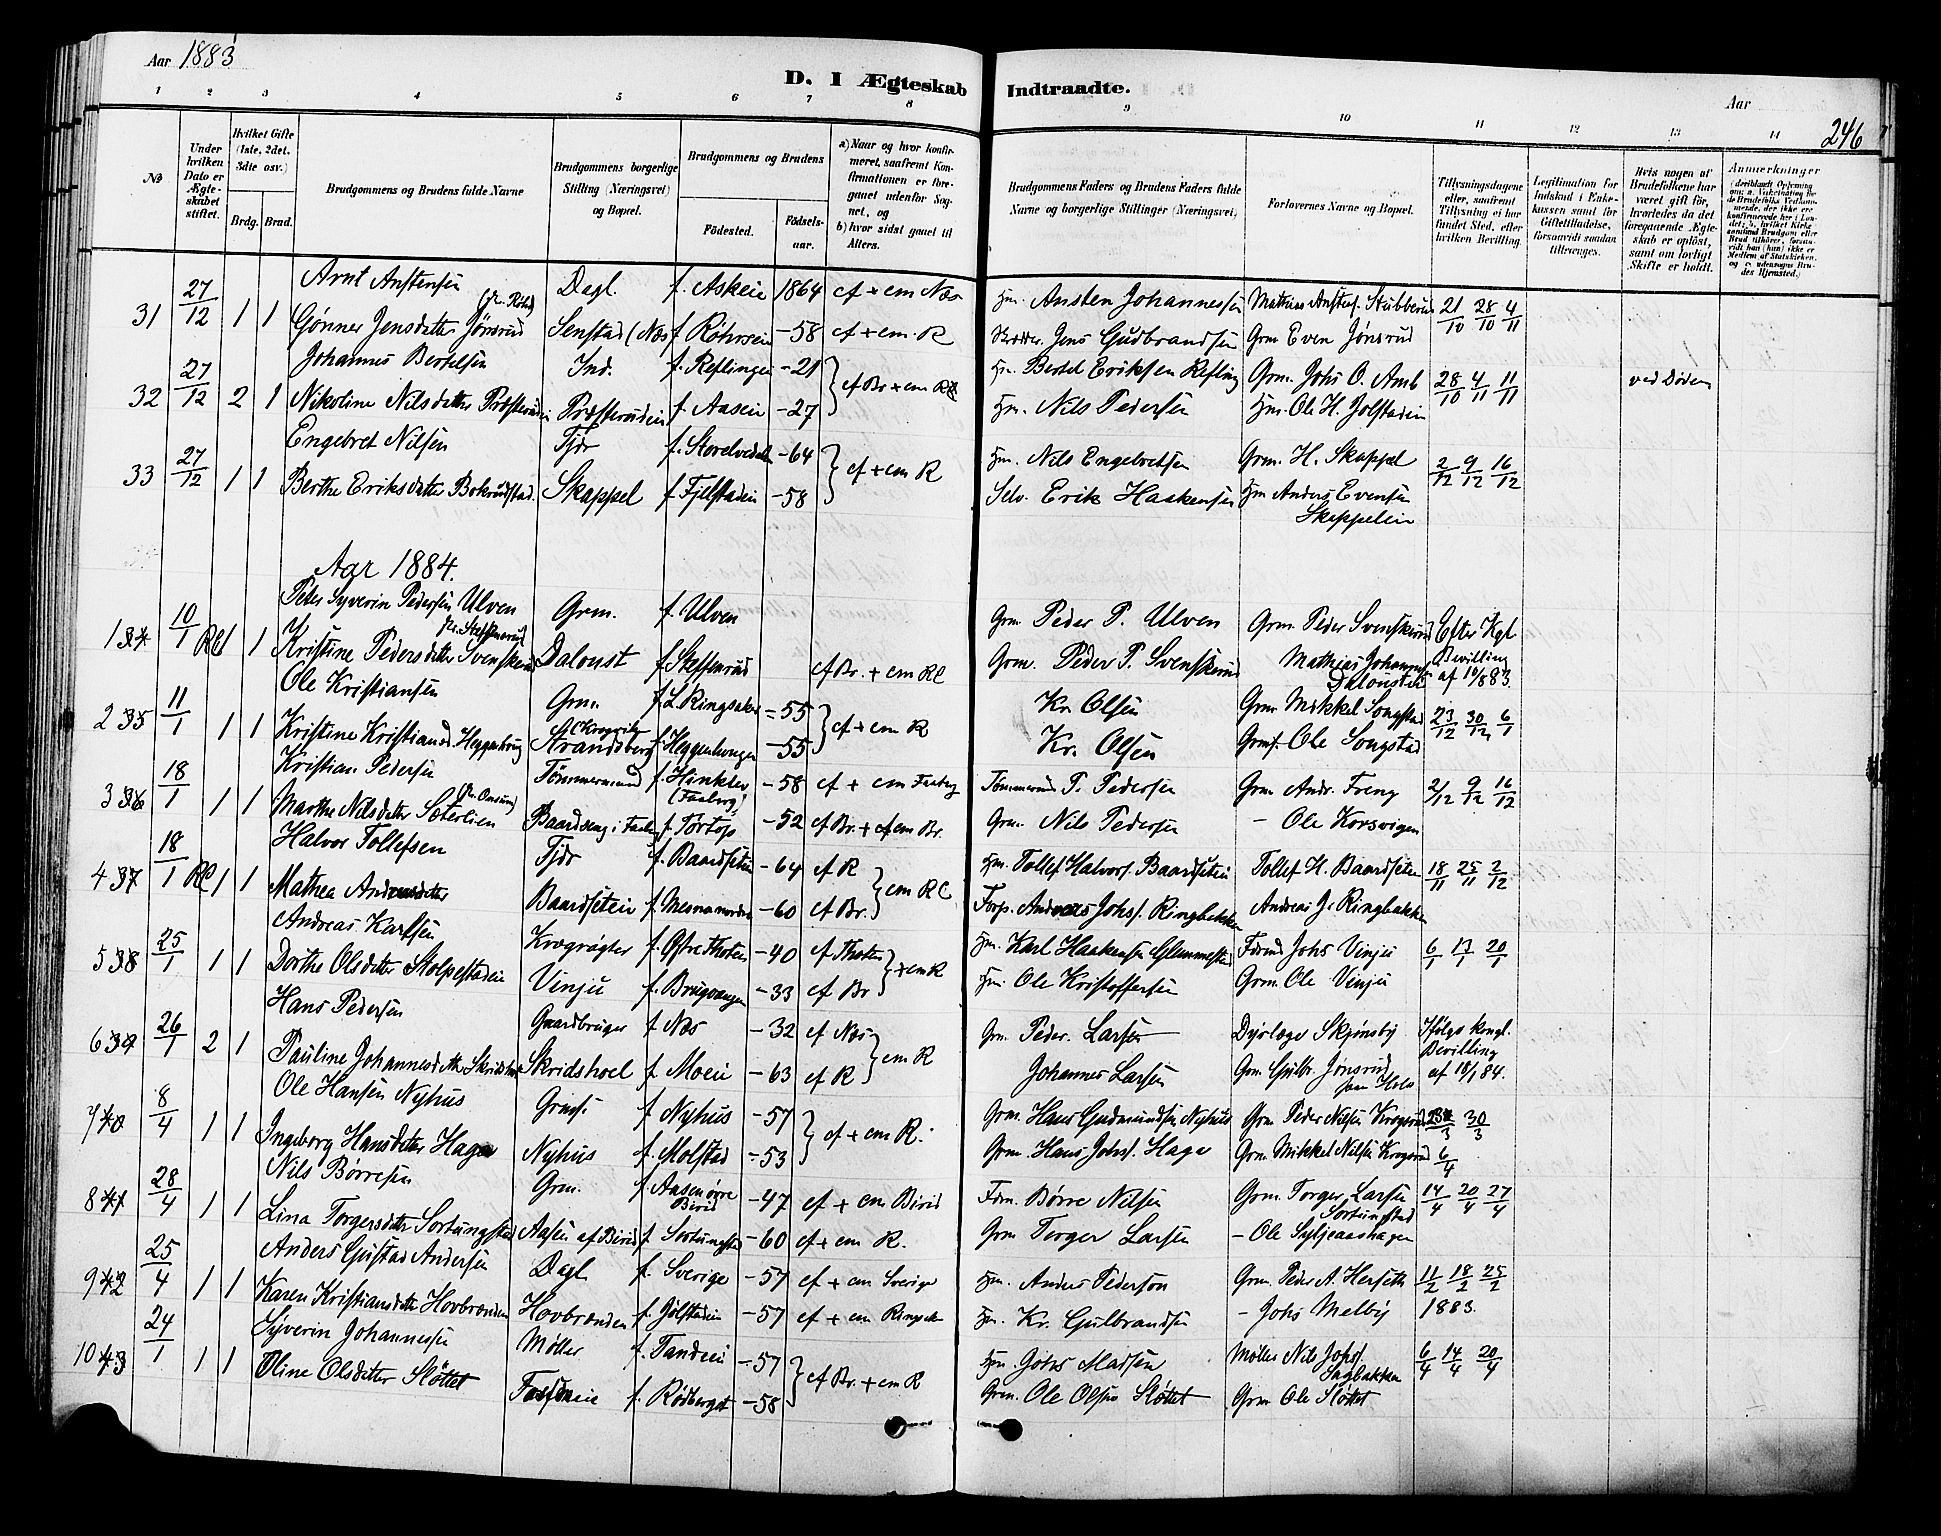 Aar 1883
D. I Ægteskab Indtraadte.
Aar
246
1 2 3 4 5 6 7 8 9 10 11 12 13 14
No
Under hvilken Dato er Ægteskabet stiftet.
Hvilket Gifte (1ste, 2det, 3die osv.)
Brdg. Brud.
Brudgommens og Brudens fulde Navne
Brudgommens borgerlige Stilling (Næringsvei) og Bopæl.
Brudgommens og Brudens
Fødested. Fødselsaar.
a) Naar og hvor konfirmeret, saafremt Konfirmationen er foregaaet udenfor Sognet, og
b) hvor sidst gaaet til Alters.
Brudgommens Faders og Brudens Faders fulde Navne og borgerlige Stillinger (Næringsvei)
Forlovernes Navne og Bopæl.
Tillysningsdagene eller, saafremt Tillysning ei har fundet Sted, efter hvilken Bevilling.
Legitimation for Indskud i Enkekassen samt for Giftetilladelse, forsaavidt saadan tiltrænges.
Hvis nogen af Brudefolkene har været gift før, hvorledes da det foregaaende Ægteskab er opløst, samt om lovligt Skifte er holdt.
Anmærkninger
31 27/12 1 1 Arnt Anstensen Dagl. f. Askeie 1864 cf + cm Næs Hm. Ansten Johannessen Mathias Anstens. Stubberud 21/10 28/10 4/11
Gønner Jensdatter Jønsrud Senstad (Næs) f. Røhrseie -58 cf + cm R Jens Gudbrandsen Grm Even Jønsrud
32 27/12 2 1 Johannes Bertelsen Ind. f. Reflingeie -21 cf Br + cm R Hm. Bertel Eriksen Refling Grm. Johs O. Amb 28/10 4/11 11/11 ved Døden
Nikoline Nilsdatter Præsterudeie Præsterudeie f. Aaseie -27 Hm. Nils Pedersen Hm. Ole H. Jolstadeie
33 27/12 1 1 Engebret Nilsen Tjdr f. Storelvedal -64 cf + cm R Hm. Nils Engebretsen Grm. H. Skappel 2/12 9/12 16/12
Berthe Eriksdatter Bokrudstad. Skappel f. Fjelstadeie -58 Selv. Erik Haakensen Hm Anders Evensen
Skappeleie
Aar 1884.
1 34 10/1 1 1 Peter Syverin Pedersen Ulven Grm. f. Ulven Grm. Peder P. Ulven Grm. Peder Svenskerud Efter Kgl
Kristine Pedersdatter Svenskerud Daloust f. Steffenrud cf Br. + cm R Grm. Peder P. Svenskerud Mathias Johannes Dalousteie Bevilling af 10/8 83.
2 35 11/1 1 1 Ole Kristiansen Grm. f. L. Ringsaker -55 cf + cm R Kr. Olsen Grm. Mikkel Songstad 23/12 30/12 6/1
Kristine Kristiansd. Heggenhoug Strandsberg f. Heggenhougen -55 Kr. Olsen Grmf. Ole Songstad
3 36 18/1 1 1 Kristian Pedersen Tømmermand f. Hinklev (Faaberg) -58 cf + cm Faaberg Tømmerm P. Pedersen Grm Andr. Freng 2/12 9/12 16/12
Marthe Nilsdatter Sæterlien Baardseng i Faaberg f. Tortop -52 cf Br. + cf cm Br. Grm. Nils Pedersen - Ole Korsvigen
4 37 18/1 1 1 Halvor Tollefsen Tjdr f. Baardseteie -64 cf R cm R Hm. Tollef Halvors. Baardseteie Tollef H. Baardseteie 18/11 25/11 2/12
Mathea Andreasdatter Baardseteie f. Mesna nordre -60 cf Br. Forp. Andreas Johs. Ringbakken Andreas J. Ringbakken
5 38 25/1 1 1 Andreas Karlsen Krogrøgter f. Østre Thoten -40 cf Thoten + cm R Hm. Karl Haakensen Glemmestad Johs Vinju 6/1 13/1 20/1
Dorthe Olsdatter Stolpestadeie Vinju f. Brugvangen -33 cf Br Hm. Ole Kristoffersen Grm. Ole Vinju
6 39 26/1 2 1 Hans Pedersen Gaardbruger f. Næs -32 cf Næs cm R Grm. Peder Larsen Dyrlæge Skjønsby Ifølge kongl.
Pauline Johannesdatter Skridshoel Skridshoel f. Moeie -63 cf R Johannes Larsen Grm Gulbr. Jønsrud Bevilling af 18/1 84.
7 40 8/4 1 1 Ole Hansen Nyhus Grmf. f. Nyhus -57 cf + cm R. Grm. Hans Gudmundsen Nyhus Grm Peder Nilsen Krogsrud 23/3 30/3
Ingeborg Hansdatter Hage Nyhus f. Molstad -53 Grm. Hans Johs. Hage Grm. Mikkel Nilsen Krogsrud 6/4
8 41 28/4 1 1 Nils Børresen Grm. f. Aasen øvre Birid -47 cf + cm Birid Fdm. Børre Nilsen Grm. Torger Larsen Sortungstad 14/4 20/4 27/4
Lina Torgersdatter Sortungstad Aasen af Birid f. Sortungstad -60 cf + cm R. Grm Torger Larsen - Ole Syljeaashagen
9 42 25/4 1 1 Anders Gustad Andersen Dagl f. Sverige -57 cf + cm Sverige Hm. Anders Pederson Grm. Peder A. Herseth 11/2 18/2 25/2
Karen Kristiansdatter Hovbrænden Hovbrænden f. Jølstadeie -57 cf + cm Ringsaker Hm. Kr. Gulbrandsen - Johs Melby 1883.
10 43 24/1 1 1 Syverin Johannessen Møller f. Tandeie -57 cf Br. + cm R Hm. Johs Madsen Møller Nils Johs. Sagbakken 6/4 14/4 20/4
Oline Olsdatter Sløttet f. Rødberget -58 Grm. Ole Olsen Sløttet Grm Ole Sløttet